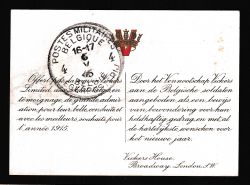 POSTES MILITAIRES
BELGIQUE
16-17
6
4 4
15
Offert par la
Limited aux
témoignage de grande admi-
ration, pour leur bravoure, et
avec les meilleurs souhaits pour
l'année 1915.
Door het Vennootschap Vickers
aan de Belgische soldaten
aangeboden, als een bewijs
van bewondering voor hun
heldhaftig gedrag, en met al
de hartelijkste wenschen voor
het nieuwe jaar.
Vickers House,
Broadway, London, S.W.